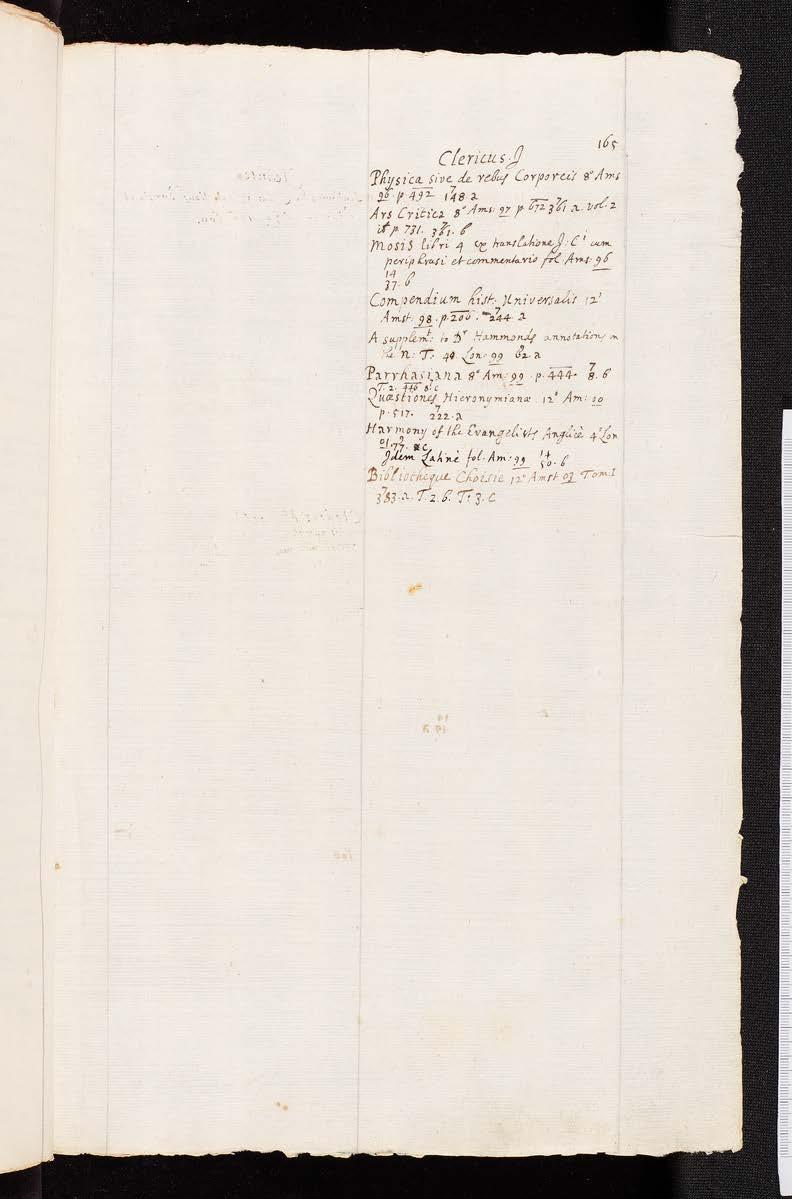 165
Clericus. J
Physica sive de rebus Corporeis 8° Ams
96 p 492 7 148.a
Ars Critica 8° Ams: 97 p 672 7 361 a. vol. 2
it p 731. 7 361. b
Mosis libri 4 ex translatione J: C^i cum
periphrasi et commentario fol. Ams: 96
14
37. b
Compendium hist. Universalis 12°
Amst. 98. p 206. 7 244 a
A supplem^t: to D^r Hammonds annotations on
the N: T. 4° Lon: 99 9 62. a
Parrhasiana 8° Am: 99. p. 444. 7 8. b
T. 2. 446 8. c
Quæstiones Hieronymianæ 12° Am: 00
p. 517. 7 222. a
Harmony of the Evangelists Anglicè 4° Lon
01. 9 77. c
Idem Latinè fol. Am: 99 14 50. b
Bibliotheque Choisie 12° Amst 03 Tom. I
7 383. a. T. 2. b. T: 3. c